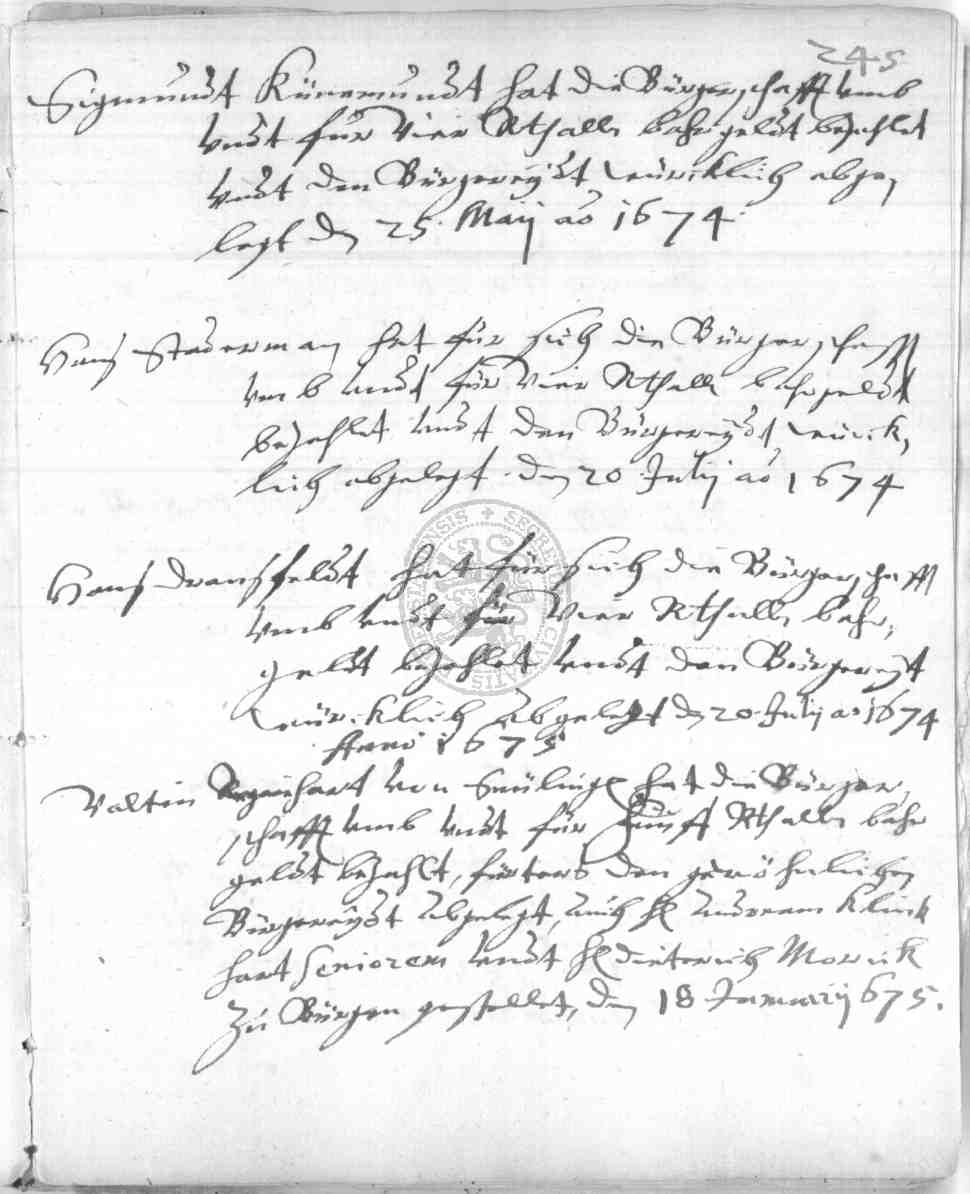 245
Sigmundt Künemundt hat die Bürgerschafft umb
undt für vier Rthall. bahr geldt bezahlet
undt den Bürgereydt würcklich abge,
legt den 25. Maij ao 1674.
Hanß Staderman hat für sich die Bürgerschafft
umb undt für vier Rthall. bahrgeldt
bezahlet undt den Bürgereydt würck,
lich abgelegt den 20 Julij ao 1674
Hanß dransfeldt hat für sich die Bürgerschafft
umb undt für Vier Rthall. bahr,
geldt bezahlet undt den Bürgereydt
würcklich abgelegt den 20. Julij ao 1674
Anno 1675
Valtin von hat die Bürger,
schafft umb undt für fünff Rthall. bahr
geldt bezahlt, fürters den gewöhnlichen
Bürgereydt abgelegt, auch H. Andream Klinck
hart Seniorem undt H. dieterich Morick
zu Bürgen gestellet, den 18 Januarij 675.
SECRETUM CIVITATIS